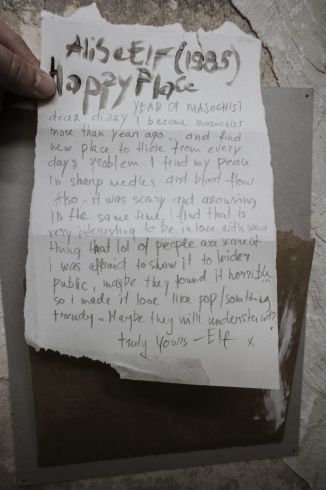 Alise Elf (1995)
Happy Place
YEAR OF MASOCHIST
dear diary I become masochist
more than year ago... and find
new place to hide from every
days problem. I find my peace
in sharp nedles and blood flow
Also - it was scary and arousing
in the same time, I find that is
very interesting to be in love with some
thing that lol of people are scare of
i was affraid to show it to wider
public, maybe they found it horrible...
so i made it look like pop/something
trendy.. Maybe they will understand?
truly yours - Elf x